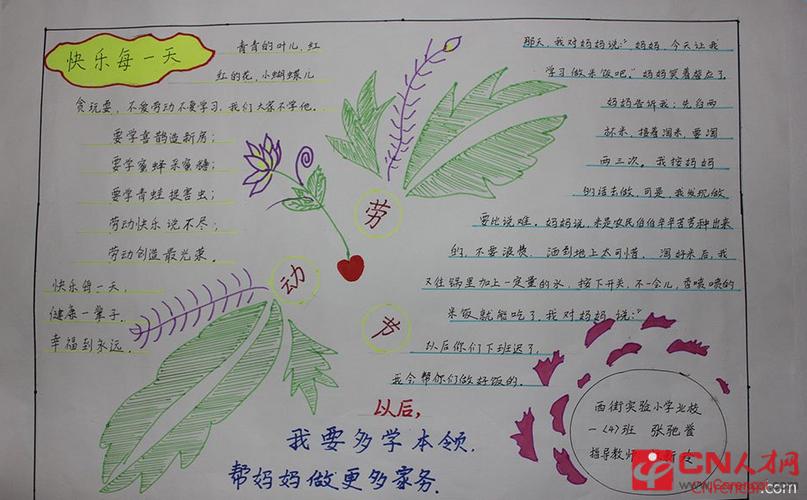 快乐每一天
青青的叶儿,红
红的花,小蝴蝶儿
贪玩耍,不爱劳动不要学习,我们大家不学他。
要学喜鹊造新房;
要学蜜蜂采蜜糖;
要学青蛙捉害虫;
劳动快乐说不尽;
劳动创造最光荣。
快乐每一天,
健康一辈子,
幸福到永远。
劳
动
节
那天,我对妈妈说:"妈妈,今天让我
学习做米饭吧。"妈妈笑着答应了。
妈妈告诉我:先舀两
杯米,接着淘米要淘
两三次。我按妈妈
的话去做,可是,我发现做
要比说难。妈妈说,米是农民伯伯辛辛苦苦种出来
的,不要浪费,洒到地上太可惜。淘好米后,我
又往锅里加上一定量的水,按下开关,不一会儿,香喷喷的
米饭就能吃了,我对妈妈说:"
以后你们下班迟了,
我会帮你们做好饭的。
以后,
我要多学本领,
帮妈妈做更多家务。
西街实验小学北校
一(4)班 张驰誉
指导教师
CN人才网
www.cnrencai.com
CNrencai.com